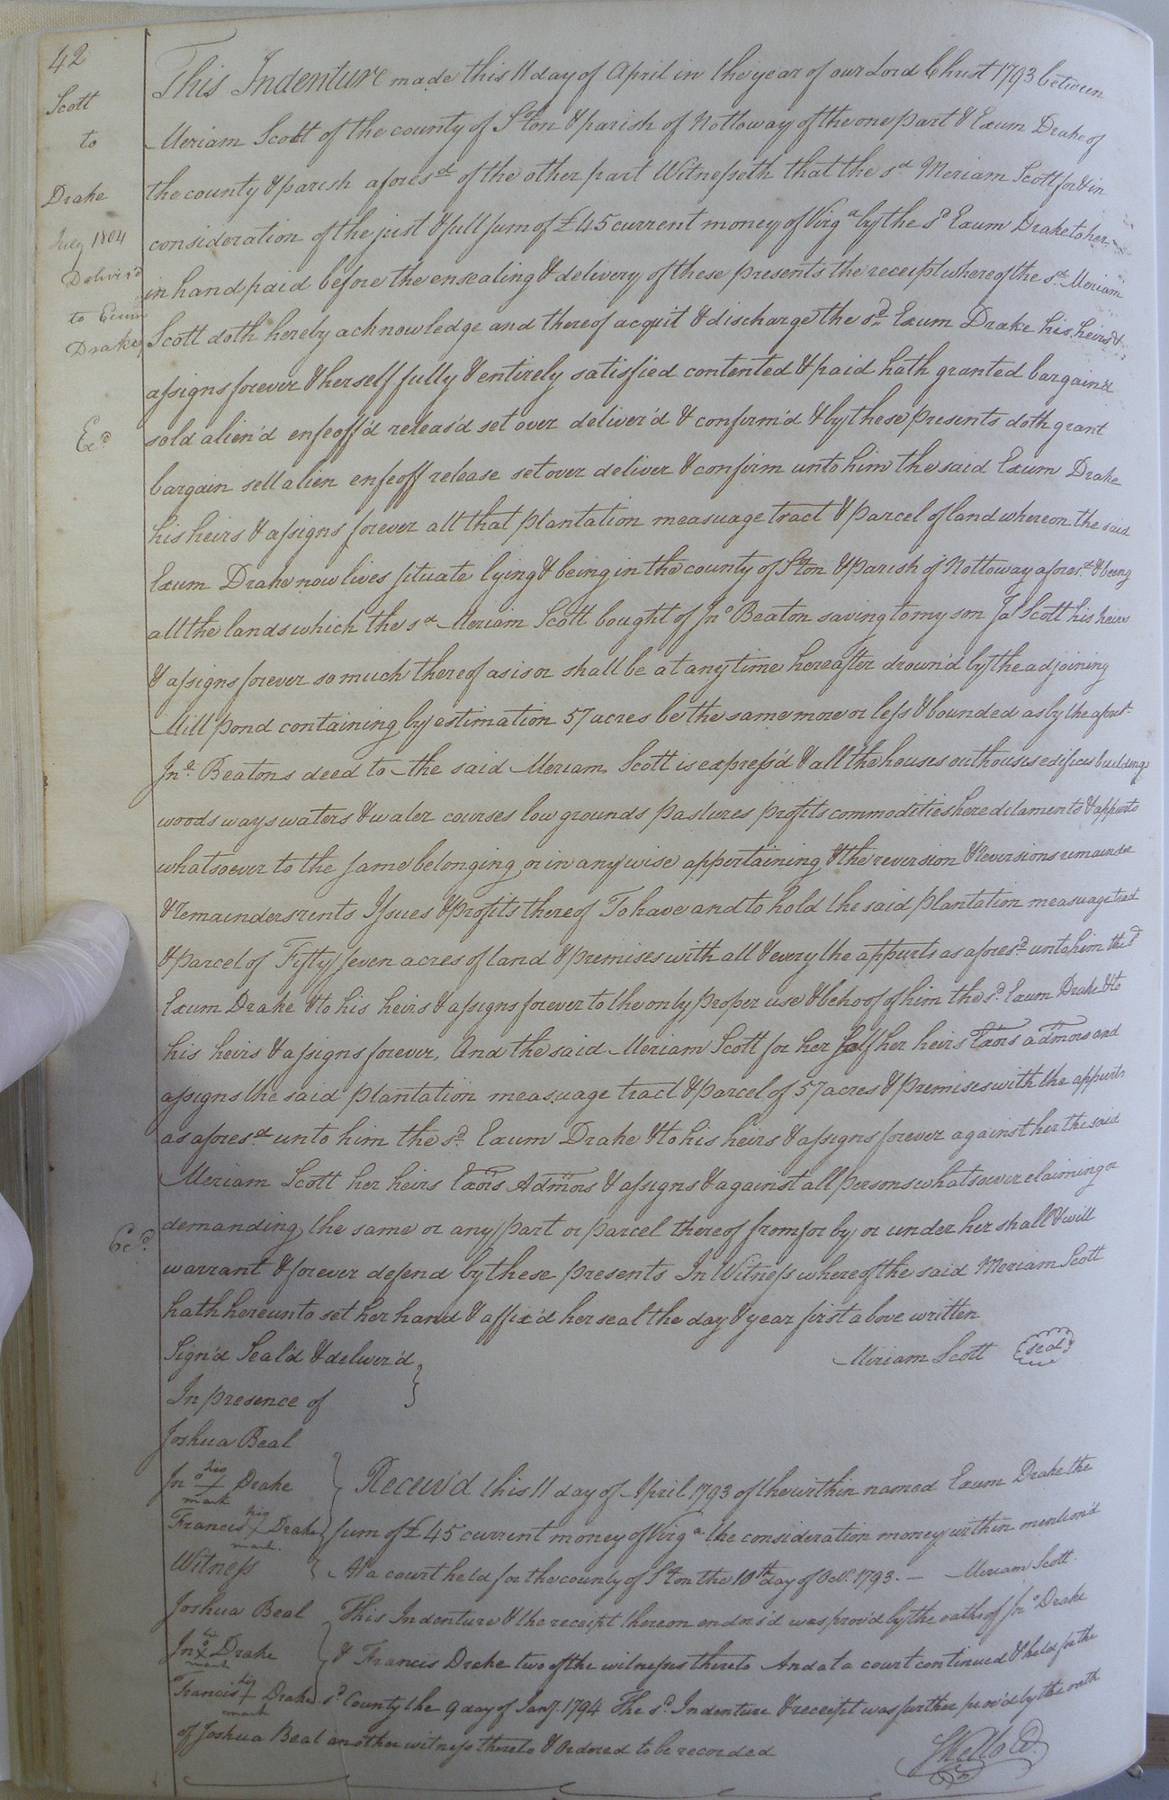 42
Scott
to
Drake
July 1804
Deliver'd
to Exum
Drake
Ex.d
This Indenture made this 11 day of April in the year of our Lord Christ 1793 between
Meriam Scott of the county of S.ton & parish of Nottoway of the one part & Exum Drake of
the county & parish afores.d of the other part Witnesseth that the s.d Meriam Scott for & in
consideration of the just & full sum of £45 current money of Virg.a by the s.d Exum Drake to her
in hand paid before the ensealing & delivery of these presents the receipt whereof the s.d Meriam
Scott doth hereby acknowledge and thereof acquit & discharge the s.d Exum Drake his heirs &
assigns forever & herself fully & entirely satisfied contented & paid hath granted bargain'd
sold alien'd enfeoff'd releas'd set over deliver'd & confirm'd & by these presents doth grant
bargain sell alien enfeoff release set over deliver & confirm unto him the said Exum Drake
his heirs & assigns forever all that plantation measuage tract & parcel of land whereon the said
Exum Drake now lives situate lying & being in the county of S.ton & parish of Nottoway afores.d & being
all the lands which the s.d Meriam Scott bought of Jn.o Beaton saving to my son Ja.s Scott his heirs
& assigns forever so much thereof as is or shall be at any time hereafter drown'd by the adjoining
Mill pond containing by estimation 57 acres be the same more or less & bounded as by the afores.d
Jn.o Beatons deed to the said Meriam Scott is express'd & all the houses outhouses edifices buildings
woods ways waters & water courses low grounds pastures profits commodities hereditaments & appurts
whatsoever to the same belonging or in any wise appertaining & the reversion & reversions remainder
& remainders rents Issues & profits thereof To have and to hold the said plantation measuage tract
& parcel of Fifty seven acres of land & premises with all & every the appurts as afores.d unto him the s.d
Exum Drake & to his heirs & assigns forever to the only proper use & behoof of him the s.d Exum Drake & to
his heirs & assigns forever, And the said Meriam Scott for her self her heirs Exors admors and
assigns the said plantation measuage tract & parcel of 57 acres & premises with the appurts
as afores.d unto him the s.d Exum Drake & to his heirs & assigns forever against her the said
Meriam Scott her heirs Exors Admors & assigns & against all persons whatsoever claiming or
demanding the same or any part or parcel thereof from for by or under her shall & will
Ex.d
warrant & forever defend by these presents In Witness whereof the said Meriam Scott
hath hereunto set her hand & affix'd her seal the day & year first above written
Sign'd Seal'd & deliver'd
Meriam Scott (seal)
In presence of
Joshua Beal
Jn.o his + mark Drake
Francis his + mark Drake
Receiv'd this 11 day of April 1793 of the within named Exum Drake the
sum of £45 current money of Virg.a the consideration money within mention'd
Witness
Meriam Scott
At a court held for the county of S.ton the 10th day of Oct.r 1793. —
Joshua Beal
Jn.o his x mark Drake
Francis his + mark Drake
This Indenture & the receipt thereon endors'd was prov'd by the oaths of Jn.o Drake
& Francis Drake two of the witnesses thereto And at a court continued & held for the
s.d County the 9 day of Jan.y 1794 The s.d Indenture & receipt was further prov'd by the oath
of Joshua Beal another witness thereto & Ordered to be recorded